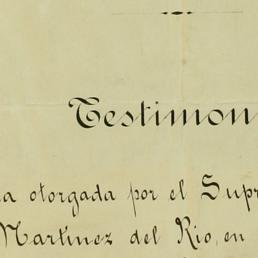 Testimon
a otorgada por el Supr
Martinez del Rio, en